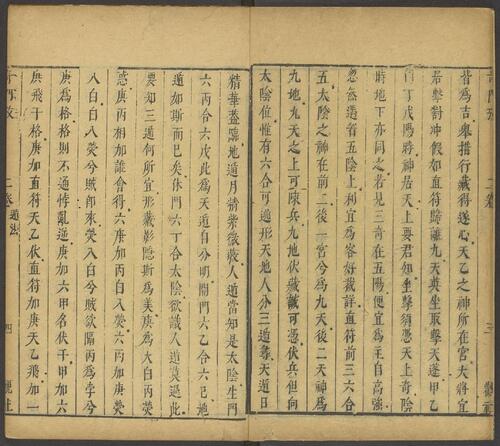 皆為吉舉措行藏得遂心天乙之神所在宮大將宜
居擊對冲假如直符歸離九天英坐取擊天蓬甲乙
丙丁戊陽時神居天上要君知坐擊須憑天上奇陰
時地下亦同之若見三奇在五陽便宜為主自高強
忽然逢着五陰上利宜為客好裁詳直符前三六合
太陰之神在前二後一宮兮為九天後二天神為
九地九天之上可陳兵九地伏藏藏可憑伏兵但向
太陰位惟有六合可逃形天地人分三遁尋天遁日
二卷
三
精華蓋臨地遁月精紫微蔽人遁當知是太陰生門
六丙合六戊此為天遁自分明開門六乙合六己地
遁如斯而已矣休門六丁合太陰欲識人遁莫過此
要知三遁何所宜形藏影隱斯為美庚為太白丙熒
惑庚丙相加誰會得六庚加丙白入熒六丙加庚熒
入白白入熒兮賊即來熒入白兮賊欲隔丙為孛兮
庚為格格則不通悖亂逆庚加六甲名伏干甲加六
庚飛干格庚加直符天乙伏直符加庚天乙飛加一
二卷
遁法
四